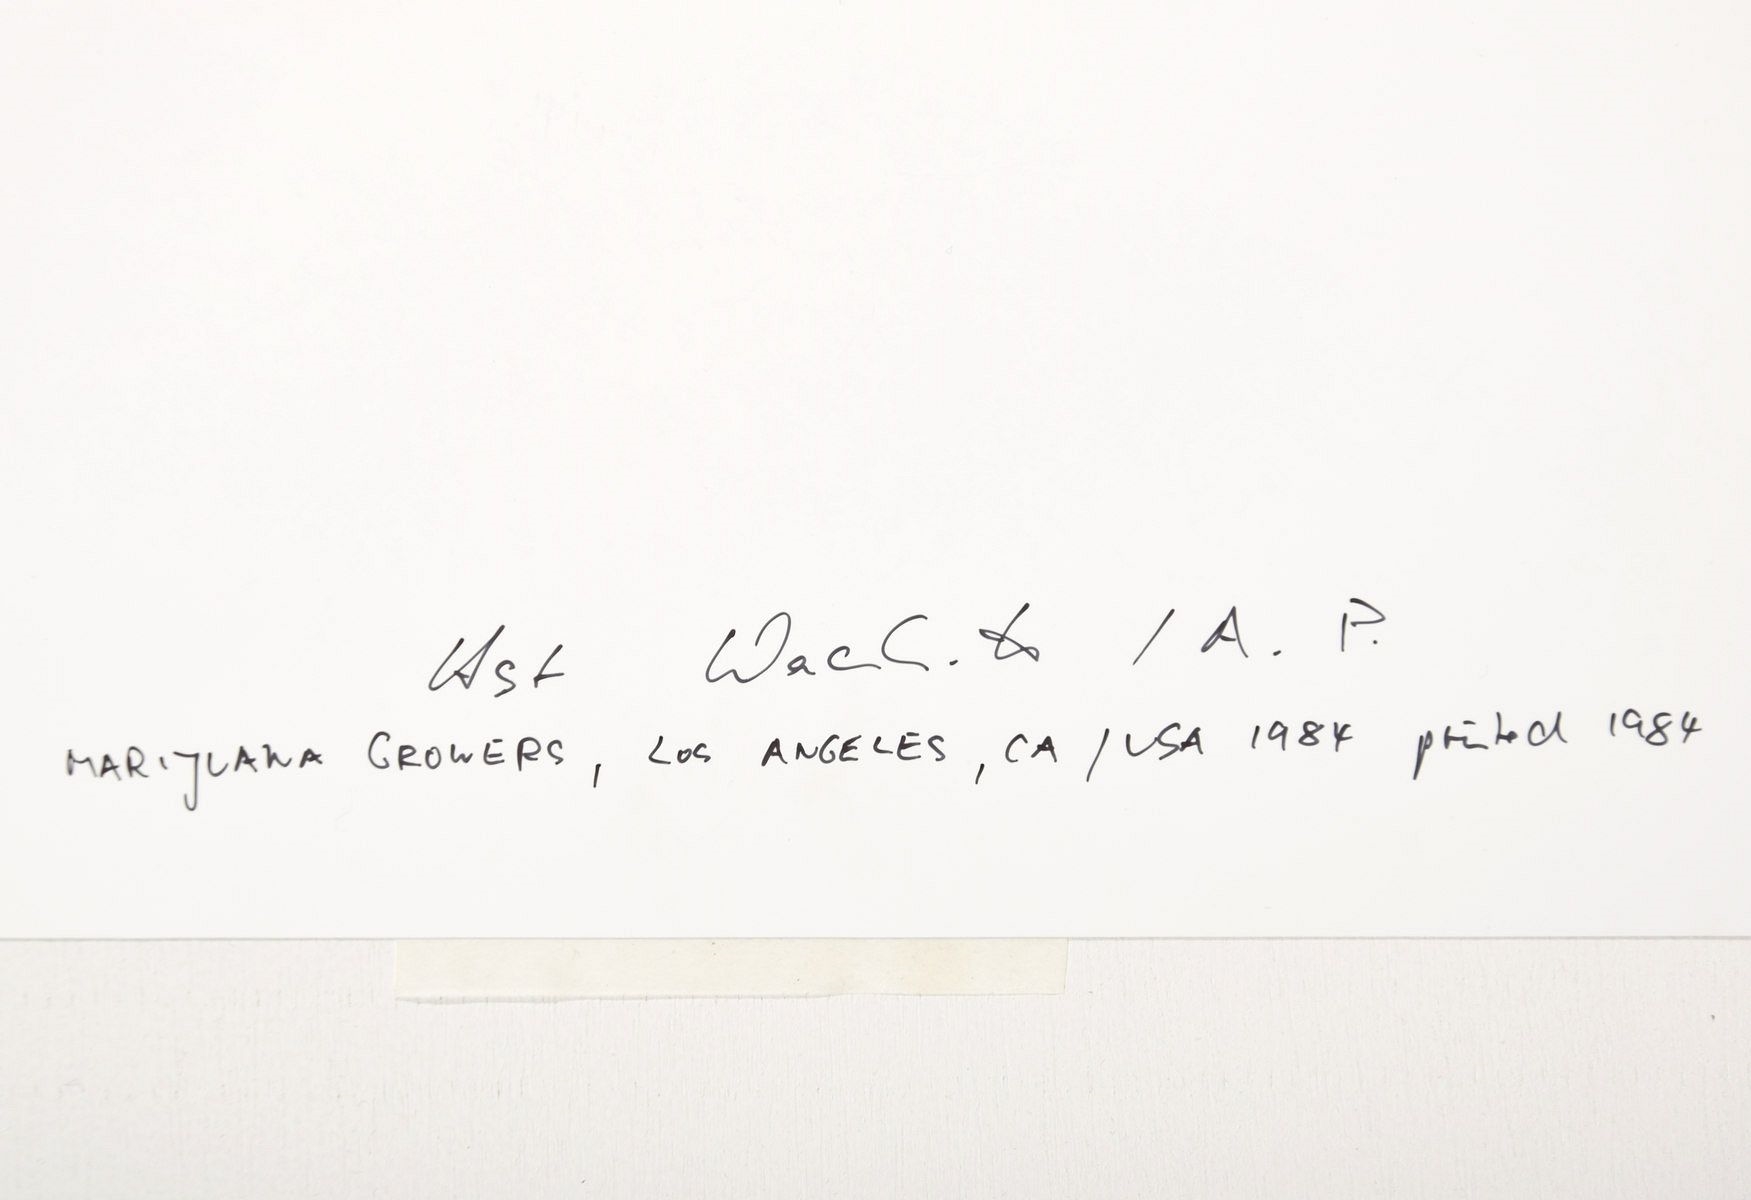 Horst Wackerbarth / A. P.
MARIJUANA GROWERS, LOS ANGELES, CA / USA 1984 printed 1984